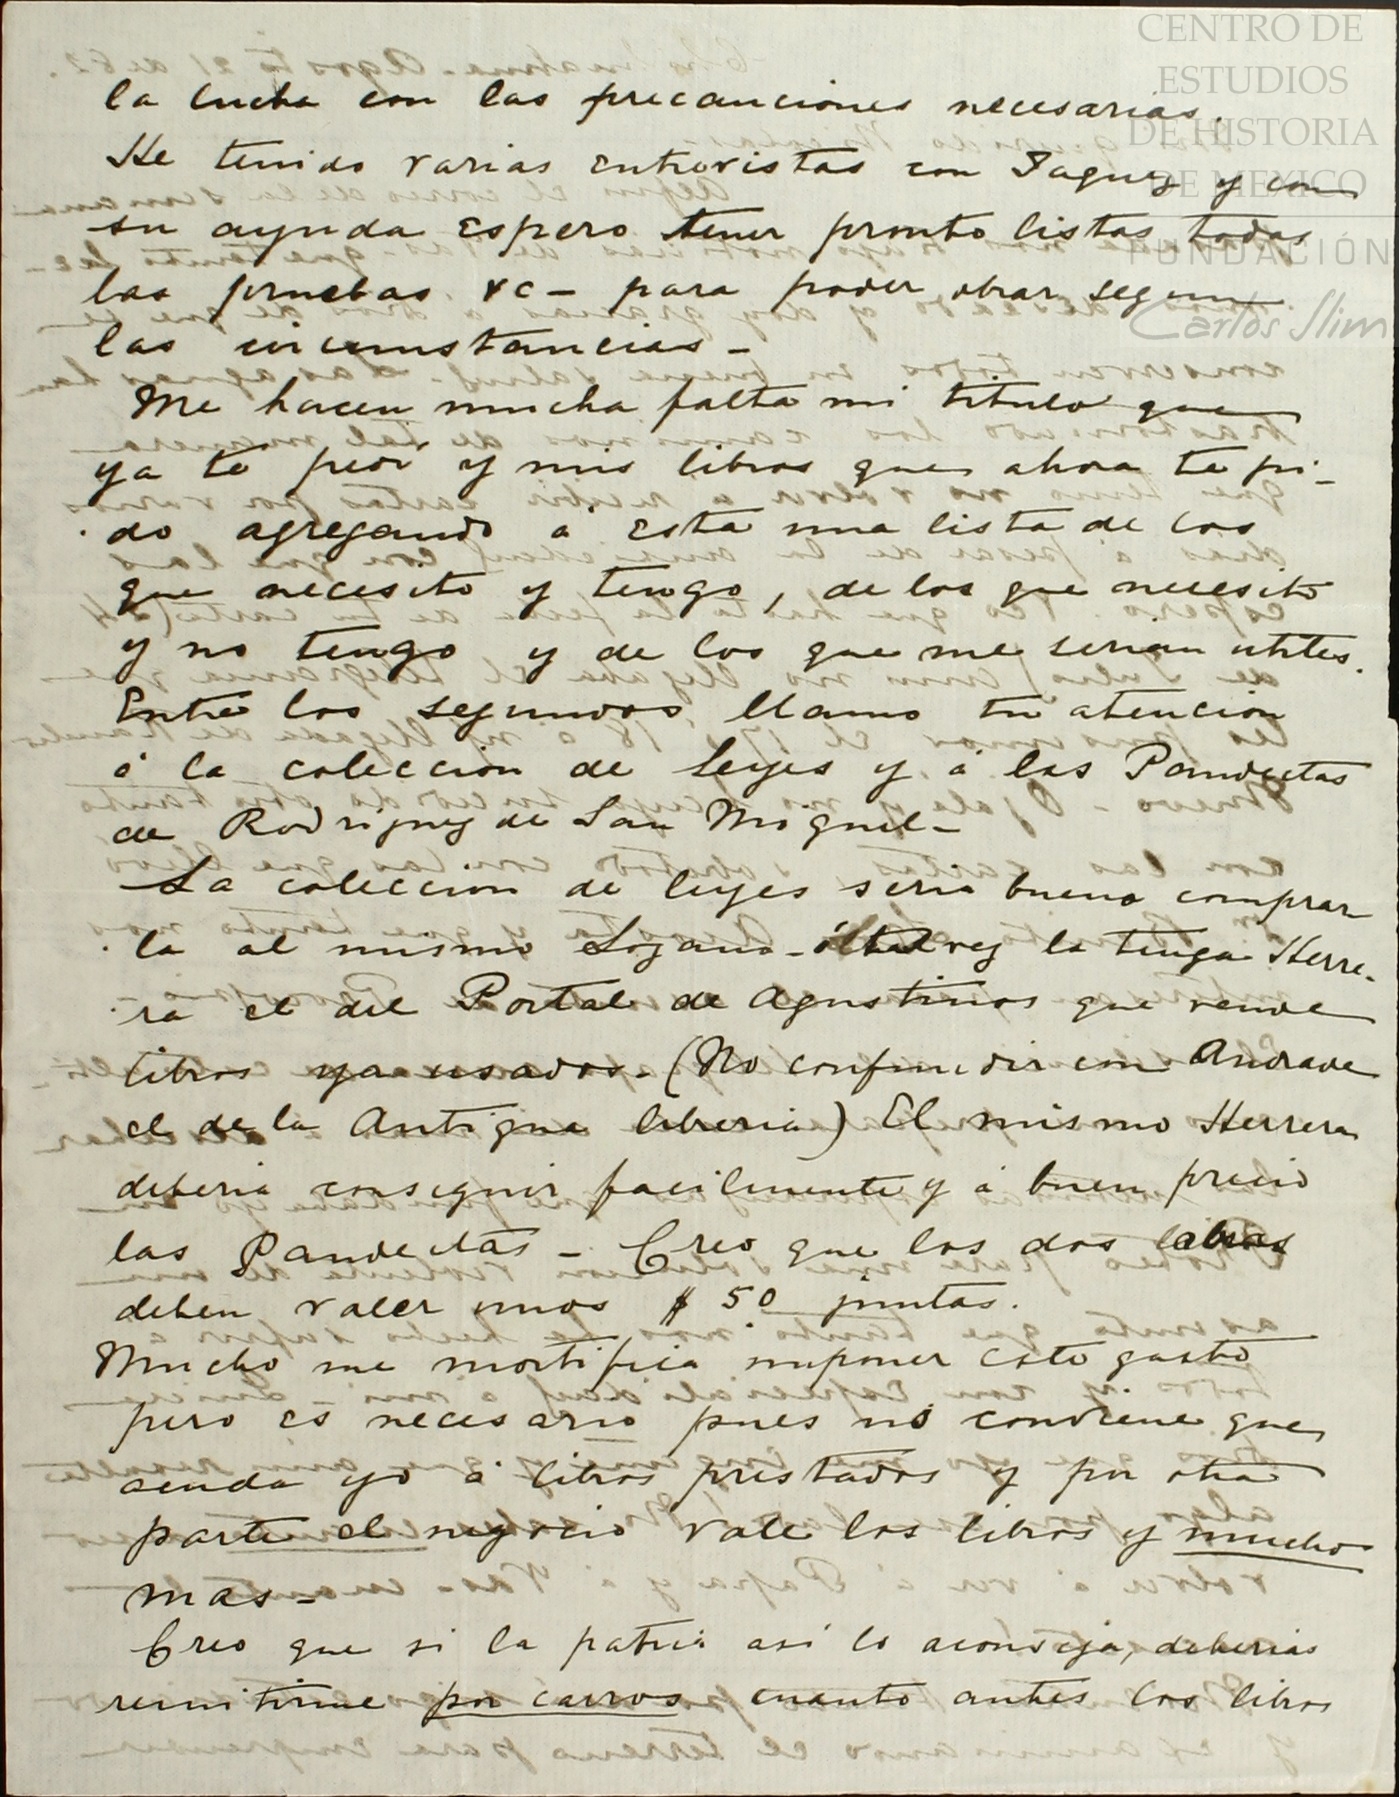 CENTRO DE
ESTUDIOS
DE HISTORIA
DE MEXICO
FUNDACIÓN
Carlos Slim
la lucha con las precauciones necesarias.
He tenido varias entrevistas con y con
su ayuda espero tener pronto listas todas
las pruebas &c - para poder obrar segun
las circumstancias -
Me hacen mucha falta mi titulo que
ya te pedí y mis libros que ahora te pi-
do agregando á esta una lista de los
que necesito y tengo, de los que necesito
y no tengo y de los que me serian utiles.
Entre los segundos llamo tu atencion
á la coleccion de Leyes y á las Pandectas
de Rodriguez de San Miguel -
La coleccion de leyes seria bueno comprar
la al mismo Lozano - ó tal vez la tenga Herre-
ra el del Portal de Agustinos que vende
libros ya usados - (No confundir con Andrade
el de la Antigua libreria) El mismo Herrera
deberia conseguir facilmente y á buen precio
las Pandectas - Creo que las dos obras
deben valer unos $ 50 juntas.
Mucho me mortifica imponer este gasto
pero es necesario pues no conviene que
acuda yo á libros prestados y por otra
parte el negocio vale los libros y mucho
mas -
Creo que si la patria así lo aconseja, deberias
remitirme por carros cuanto antes los libros